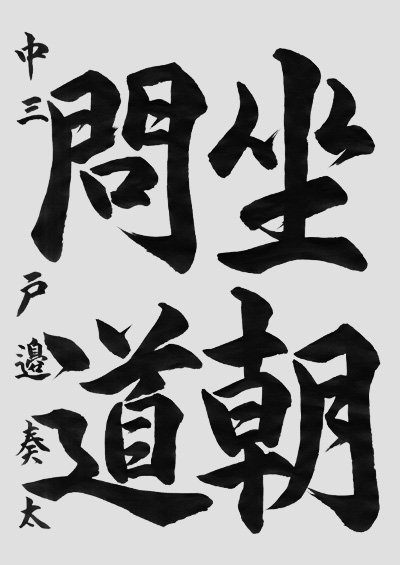 坐朝
問道
中三 戸邉奏太